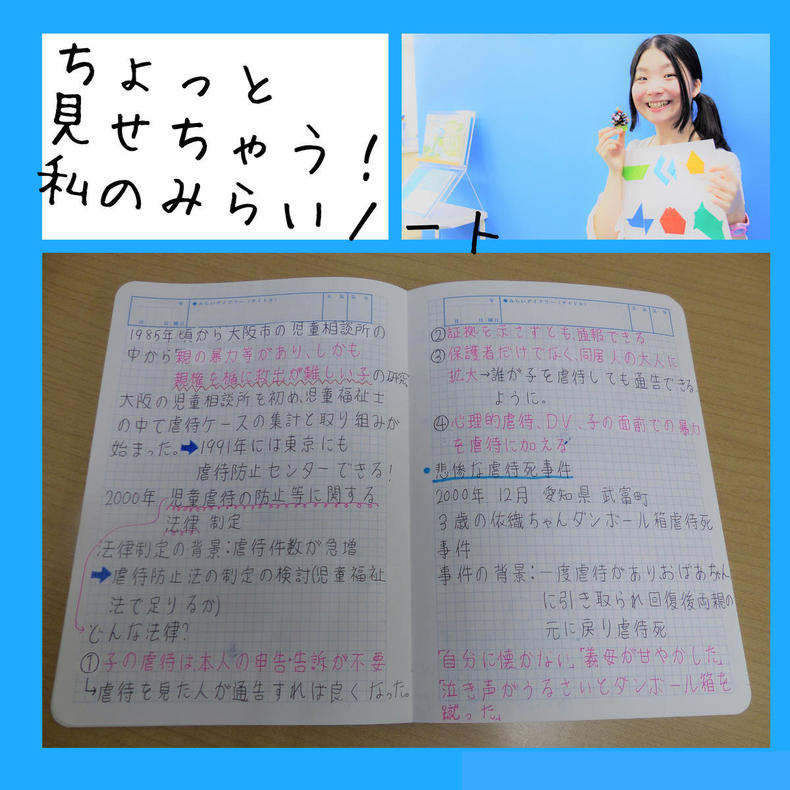 ちょっと
見せちゃう!
私のみらいノート
●みらいダイアリー(タイトル)
1985年頃から大阪市の児童相談所の
中から親の暴力等があり、しかも
親権を楯に救出が難しい子の研究
大阪の児童相談所を初め、児童福祉士
の中で虐待ケースの集計と取り組みが
始まった。➡1991年には東京にも
虐待防止センターできる!
2000年 児童虐待の防止等に関する
法律 制定
法律制定の背景:虐待件数が急増
➡虐待防止法の制定の検討(児童福祉
法で足りるか)
どんな法律?
①子の虐待は、本人の申告・告訴が不要
↳虐待を見た人が通告すれば良くなった。
●みらいダイアリー(タイトル)
②証拠を示さずとも、通報できる
③保護者だけでなく、同居人の大人に
拡大→誰が子を虐待しても通告できる
ように。
④心理的虐待、D.V、子の面前での暴力
を虐待に加える
•悲惨な虐待死事件
2000年 12月 愛知県 武富町
3歳の依織ちゃんダンボール箱虐待死
事件
事件の背景:一度虐待がありおばあちゃん
に引き取られ回復後両親の
元に戻り虐待死
「自分に懐かない」「義母が甘やかした」
「泣き声がうるさいとダンボール箱を
蹴った」